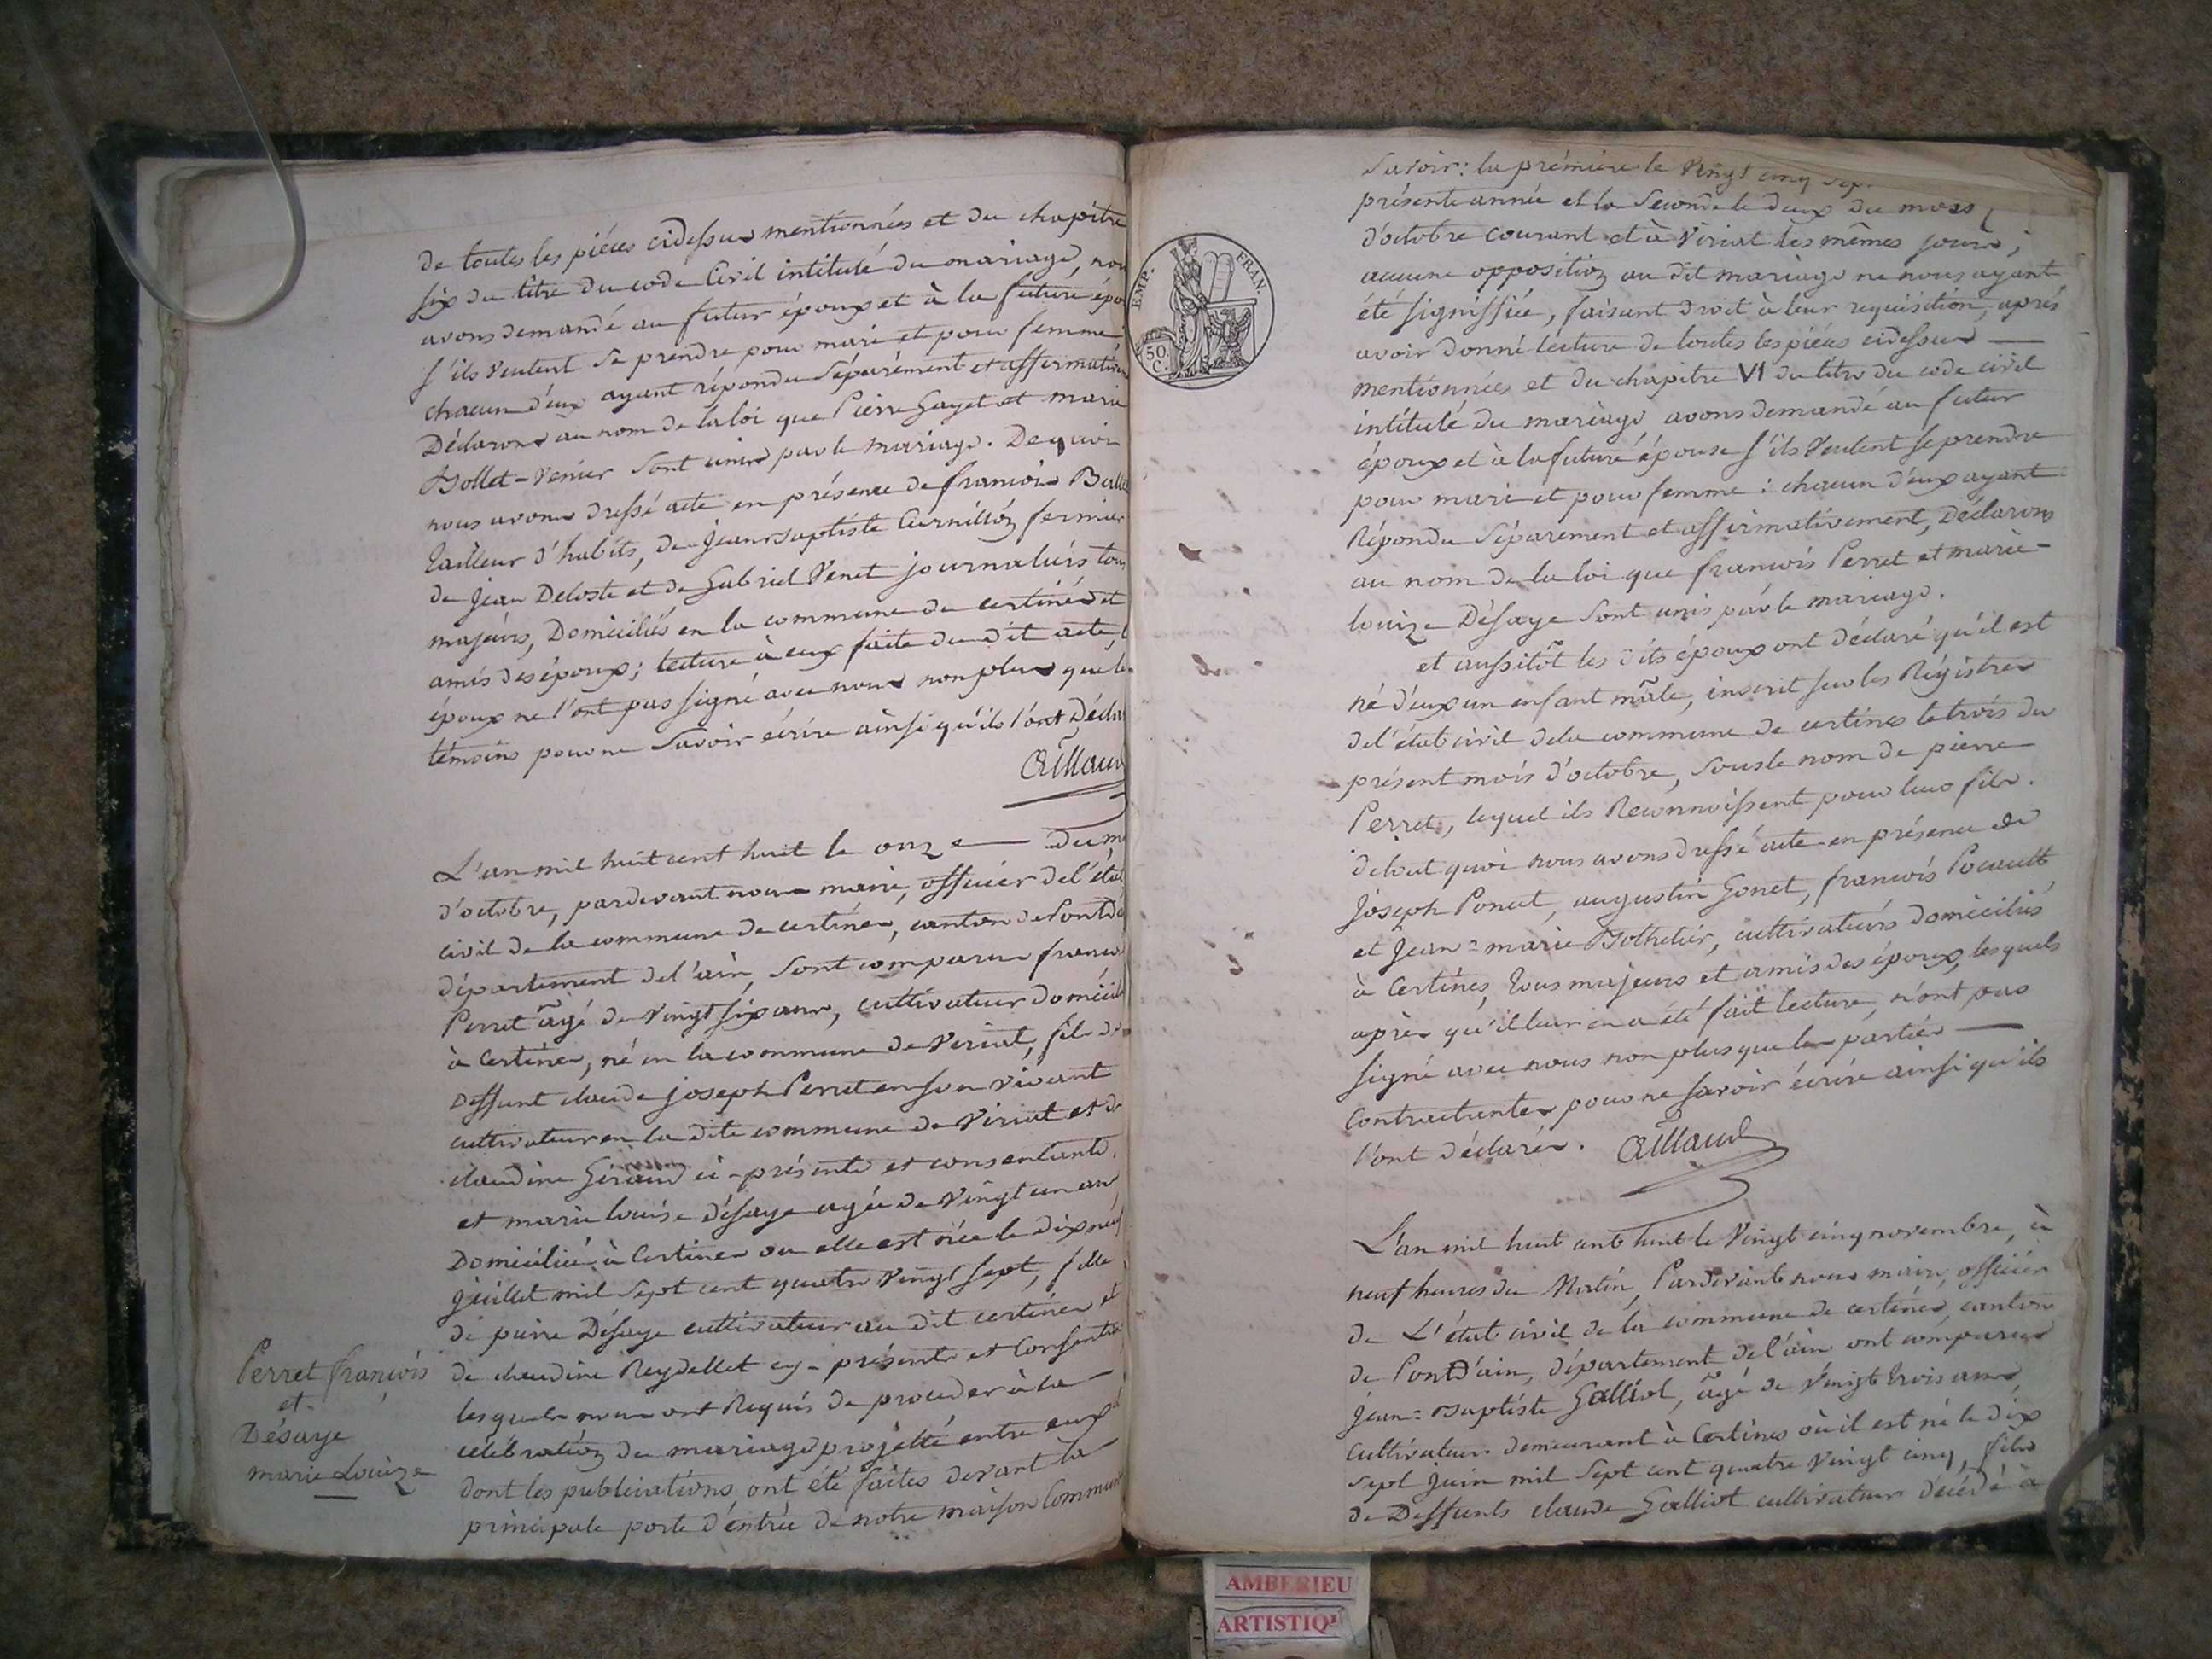 de toutes les piéces cidessus mentionnées et du chapitre
six du titre du code Civil intitulé du mariage, nou
avons demandé au futur époux et à la future épo
s'ils veulent se prendre pour mari et pour femme
chacun d'eux ayant répondu Séparément et affirmativ
Déclarons au nom de la loi que Pierre Gayet et marie
Gollet-Venier sont unis par le mariage. De quoi
nous avons dressé acte en présence de francois
tailleur d'habits, de jean baptiste Curnillon fermier
de jean Deloste et de Gabriel Venet journaliérs tou
majeurs, Domiciliés en la commune de certines et
amis des époux; lecture à eux faite du dit acte,
époux ne l'ont pas signé avec nous non plus que le
témoins pour ne Savoir écrire ainsi qu'ils l'ont Décla
L'an mil huit cent huit le onze du m
d'octobre, pardevant nous maire, officier de l'état
civil de la commune de certines, canton de Pontd
département de l'ain, Sont comparus franco
Perret âgé de Vingt six ans, cultivateur domicili
à Certines, né en la commune de Viriat, fils de
deffunt claude joseph Perret en son vivant
cultivateur en la dite commune de Viriat et de
claudine Giraud ci-présente et consentante
et marie louise désaye agée de Vingt un an
Domiciliée à Certines ou elle est née le dix neuf
juillet mil Sept cent quatre Vingt Sept, fille
de pierre Désaye cultivateur au dit certines et
de claudine Reydellet cy-présents et Consentan
lesquels nous ont Requis de procéder à la
célébration du mariage projetté entre eux
dont les publications ont été faites devant la
principale porte d'entrée de notre maison Commune
Perret francois
et
Désaye
marie Louize
EMP. FRAN.
50 C.
Savoir: la prémiere le Vingt cinq Sep
présente année et la Seconde le deux du mois
d'octobre courant et à Viriat les mêmes jours;
aucune opposition au dit mariage ne nous ayant
été signiffiée, faisant droit à leur requisition, aprés
avoir donné lecture de toutes les piéces cidessus
mentionnées et du chapitre VI du titre du code civil
intitulé du mariage avons demandé au futur
époux et à la future épouse s'ils veulent se prendre
pour mari et pour femme: chacun d'eux ayant
Répondu Séparement et affirmativement, Déclarons
au nom de la loi que francois Perret et marie-
louize Désaye Sont unis par le mariage.
et aussitôt les dits époux ont déclaré qu'il est
né d'eux un enfant mâle, inscrit sur les Régistres
de l'état civil de la commune de certines le trois du
présent mois d'octobre, Sous le nom de pierre
Perret, lequel ils Reconnoissent pour leur fils.
de tout quoi nous avons dressé acte en présence de
Joseph Poncet, augustin Gonet, francois
et Jean-marie Gothelier, cultivateurs domiciliés
à Certines, tous majeurs et amis des époux, lesquels
après qu'il leur en a été fait lecture, n'ont pas
signé avec nous non plus que les parties
contractantes pour ne savoir écrire ainsi qu'ils
l'ont déclaré.
L'an mil huit cent huit le Vingt cinq novembre, à
neuf heures du Matin, Pardevant nous maire, officier
de L'état civil de la commune de certines, canton
de Pontd'ain, département de l'ain ont comparus
Jean-Baptiste Galliot, âgé de Vingt trois ans
Cultivateur demeurant à Certines où il est né le dix
sept juin mil Sept cent quatre Vingt cinq, fils
de Deffunts claude Galliot cultivateur décédé à
AMBERIEU
ARTISTIQ